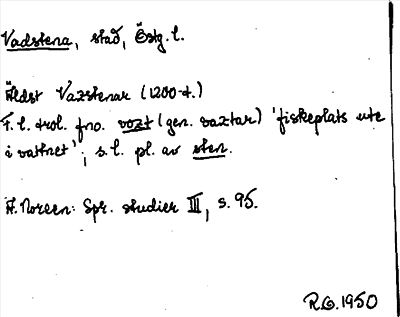 Vadstena, stad, Östg.l.
Äldst Vazstenar (1200-t.)
F.l. trol. fno. vozt (gen. vaztar) 'fiskeplats ute
i vattnet'; s.l. pl. av sten.
A. Noreen: Spr. studier III, s. 95.
R.G. 1950